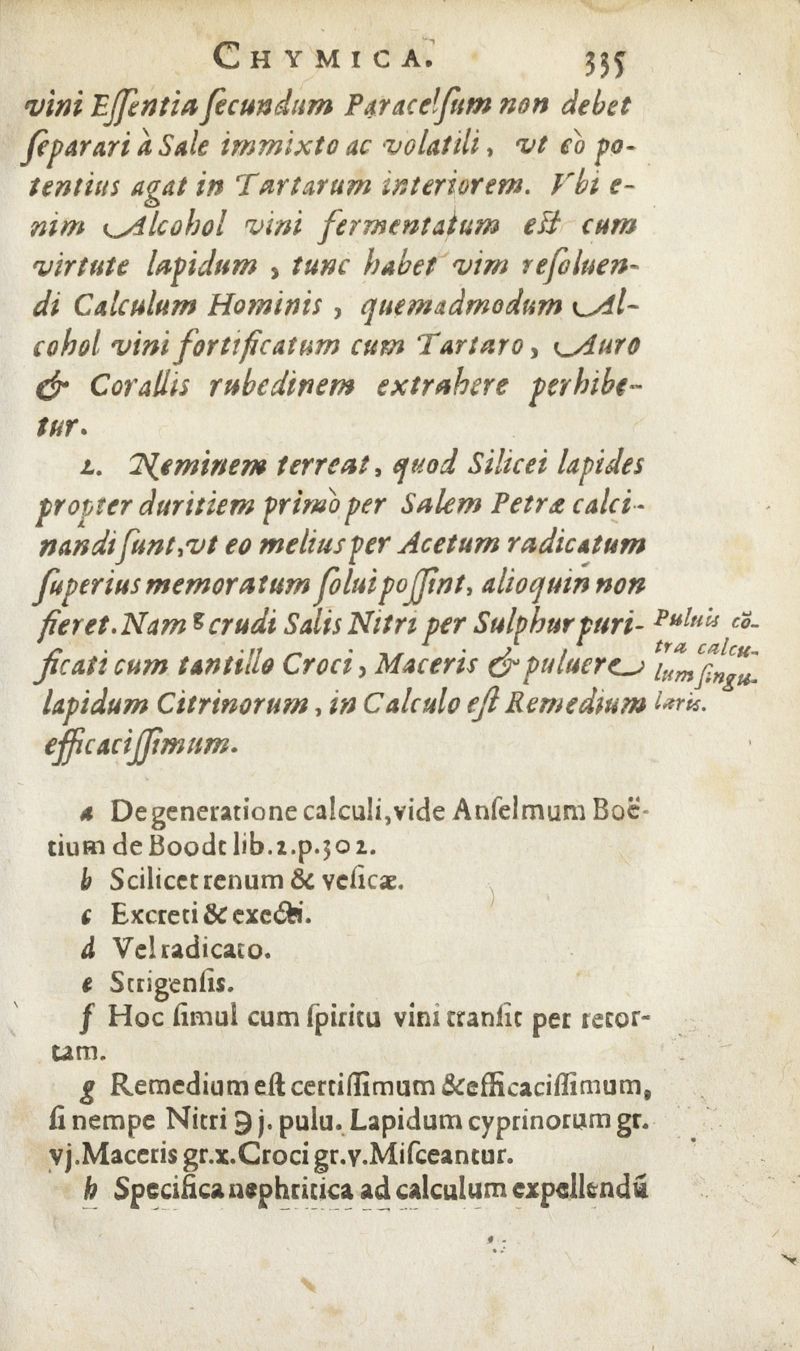 CHYMICA. 335
vini Eſſentia ſecundum Paracelſum non debet
ſeparari à Sale immixto ac volatili, vt eò po-
tentius agat in Tartarum interiorem. Vbi e-
nim Alcohol vini fermentatum eſt cum
virtute lapidum, tunc habet vim reſoluen-
di Calculum Hominis, quemadmodum Al-
cohol vini fortificatum cum Tartaro, Auro
& Corallis rubedinem extrahere perhibe-
tur.
2. Neminem terreat, quod Silicei lapides
propter duritiem primò per Salem Petræ calci-
nandi ſunt, vt eo melius per Acetum radicatum
ſuperius memoratum ſolui poſſint, alioquin non
fieret. Nam g crudi Salis Nitri per Sulphur puri-
ficati cum tantillo Croci, Maceris & puluere
lapidum Citrinorum, in Calculo eſt Remedium
efficaciſſimum.
Puluis cō-
tra calcu-
lum ſingu-
laris.
a De generatione calculi, vide Anſelmum Boë-
tium de Boodt lib.2.p.302.
b Scilicet renum & veſicæ.
c Excreti & execti.
d Vel radicato.
e Strigenſis.
f Hoc ſimul cum ſpiritu vini tranſit per retor-
tam.
g Remedium eſt certiſſimum & efficaciſſimum,
ſi nempe Nitri ℈ j. pulu. Lapidum cyprinorum gr.
vj. Maceris gr.x. Croci gr.v. Miſceantur.
h Specifica nephritica ad calculum expellendū